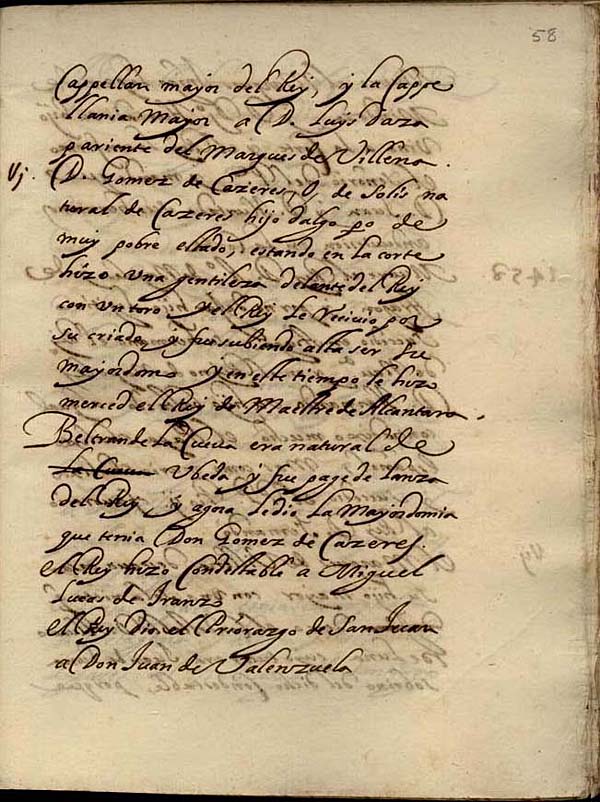 58
Cappellan mayor del Rey, y la Cappe
llania Mayor a D. Luys Daza
pariente del Marques de Villena.
Vj. D. Gomez de Cazeres, O, de Solis na
tural de Cazeres hijo dalgo po de
muy pobre estado, estando en la corte
hizo una gentileza delante del Rey
con un toro y el Rey le recivio por
su criado, y fue subiendo asta ser su
mayordomo y en este tiempo le hizo
merced el Rey de Maestre de Alcantara.
Beltran de La Cueva era natural de
La Cueva Ubeda y fue page de Lanza
del Rey, y agora le dio La Mayordomia
que tenia Don Gomez de Cazeres.
el Rey hizo Condestable a Miguel
Lucas de Iranzo
el Rey dio el Priorazgo de San Juan
a Don Juan de Valenzuela